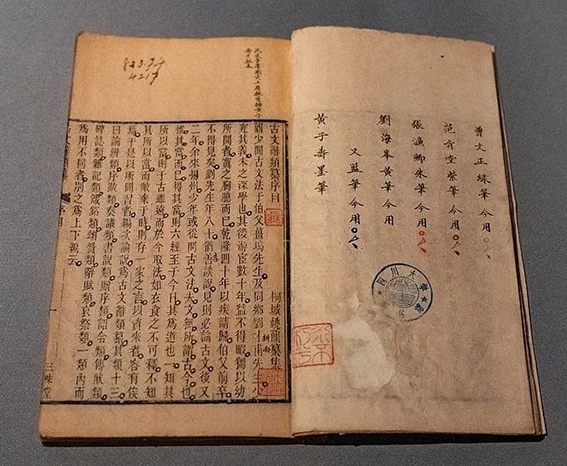 曾文正綠筆 今用
范肯堂紫筆 今用
張濂卿朱筆 今用
劉海峯黃筆 今用
又藍筆 今用
黃子壽墨筆
四川大學
古文辭類纂序目
桐城姚鼐纂集
鼐少聞古文法於伯父薑塢先生及同鄉劉才甫先生少
究其義未之深學也其後游宦數十年益不得暇獨以幼
所聞者寘之胸臆而已乾隆四十年以疾請歸伯父前卒
不得見矣劉先生年八十猶善談說見則必論古文後又
二年余來揚州少年或從問古文法夫文無所謂古今也
惟其當而已得其當則六經至于今日其爲道也一知其
所以當則於古雖遠而於今取法如衣食之不可釋不知
其所以當而敝棄于時則存一家之言以資來者容有俟
焉於是以所聞習者編次論說爲古文辭類纂其類十三
曰論辨類序跋類奏議類書說類贈序類詔令類傳狀類
碑誌類雜記類箴銘類頌贊類辭賦類哀祭類一類內而
爲用不同者別之爲上下編云
三味堂